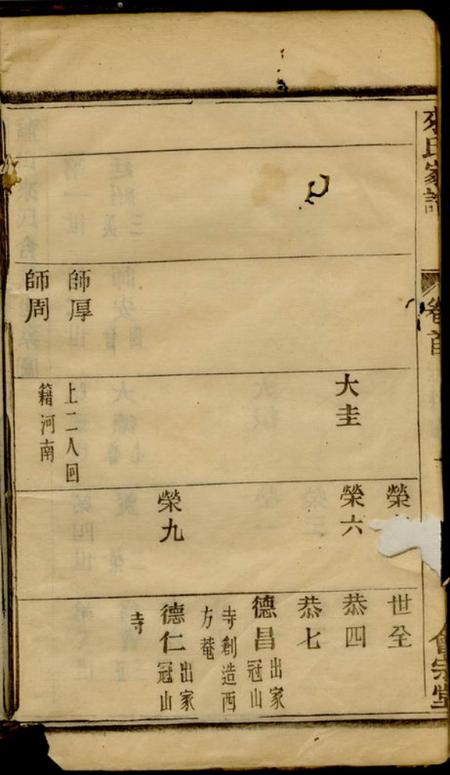 來氏家譜
卷首
會宗堂
榮
世全
大圭
榮六
恭四
恭七
德昌
出家
冠山
寺創造西
方菴
榮九
德仁
出家
冠山
寺
師厚
上二人回
籍河南
師周